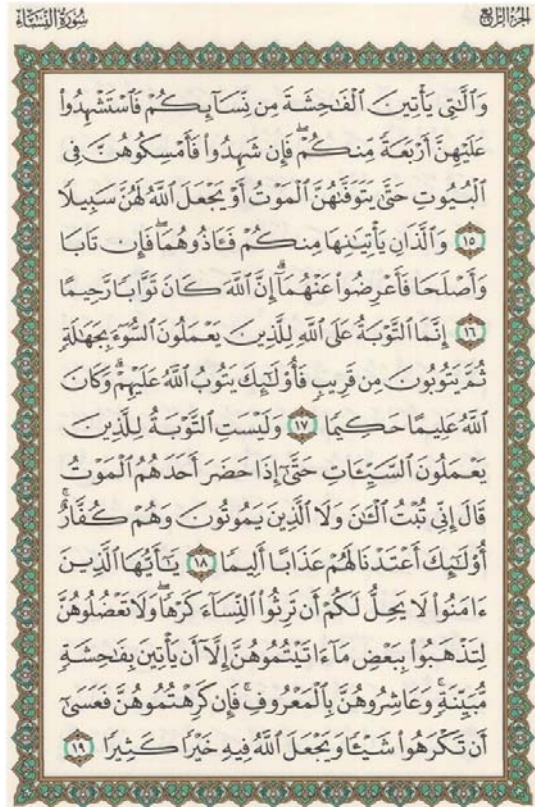 الجزء الرابع
سورة النساء
وَٱلَّٰتِي يَأۡتِينَ ٱلۡفَٰحِشَةَ مِن نِّسَآئِكُمۡ فَٱسۡتَشۡهِدُواْ
عَلَيۡهِنَّ أَرۡبَعَةٗ مِّنكُمۡۖ فَإِن شَهِدُواْ فَأَمۡسِكُوهُنَّ فِي
ٱلۡبُيُوتِ حَتَّىٰ يَتَوَفَّىٰهُنَّ ٱلۡمَوۡتُ أَوۡ يَجۡعَلَ ٱللَّهُ لَهُنَّ سَبِيلٗا
١٥ وَٱلَّذَانِ يَأۡتِيَٰنِهَا مِنكُمۡ فَـَٔاذُوهُمَاۖ فَإِن تَابَا
وَأَصۡلَحَا فَأَعۡرِضُواْ عَنۡهُمَآۗ إِنَّ ٱللَّهَ كَانَ تَوَّابٗا رَّحِيمًا
١٦ إِنَّمَا ٱلتَّوۡبَةُ عَلَى ٱللَّهِ لِلَّذِينَ يَعۡمَلُونَ ٱلسُّوٓءَ بِجَهَٰلَةٖ
ثُمَّ يَتُوبُونَ مِن قَرِيبٖ فَأُوْلَٰٓئِكَ يَتُوبُ ٱللَّهُ عَلَيۡهِمۡۗ وَكَانَ
ٱللَّهُ عَلِيمًا حَكِيمٗا ١٧ وَلَيۡسَتِ ٱلتَّوۡبَةُ لِلَّذِينَ
يَعۡمَلُونَ ٱلسَّيِّـَٔاتِ حَتَّىٰٓ إِذَا حَضَرَ أَحَدَهُمُ ٱلۡمَوۡتُ
قَالَ إِنِّي تُبۡتُ ٱلۡـَٰٔنَ وَلَا ٱلَّذِينَ يَمُوتُونَ وَهُمۡ كُفَّارٌۚ
أُوْلَٰٓئِكَ أَعۡتَدۡنَا لَهُمۡ عَذَابًا أَلِيمٗا ١٨ يَٰٓأَيُّهَا ٱلَّذِينَ
ءَامَنُواْ لَا يَحِلُّ لَكُمۡ أَن تَرِثُواْ ٱلنِّسَآءَ كَرۡهٗاۖ وَلَا تَعۡضُلُوهُنَّ
لِتَذۡهَبُواْ بِبَعۡضِ مَآ ءَاتَيۡتُمُوهُنَّ إِلَّآ أَن يَأۡتِينَ بِفَٰحِشَةٖ
مُّبَيِّنَةٖۚ وَعَاشِرُوهُنَّ بِٱلۡمَعۡرُوفِۚ فَإِن كَرِهۡتُمُوهُنَّ فَعَسَىٰٓ
أَن تَكۡرَهُواْ شَيۡـٔٗا وَيَجۡعَلَ ٱللَّهُ فِيهِ خَيۡرٗا كَثِيرٗا ١٩